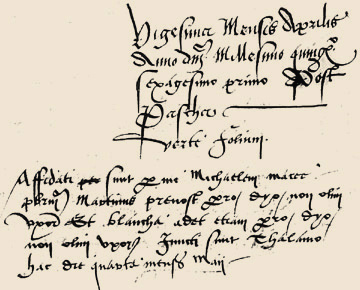 Vigesima Mensis Aprilis
Anno dñi Millesimo quingmo
sexagesimo primo Post
Pascha
Verte folium.
Affidati sunt per me Michaelem
pbrm Martinus prevost non olim
uxor Et blancha adet etiam
non olim uxor Juncti sunt Thalamo
hac die quarta mensis Maii